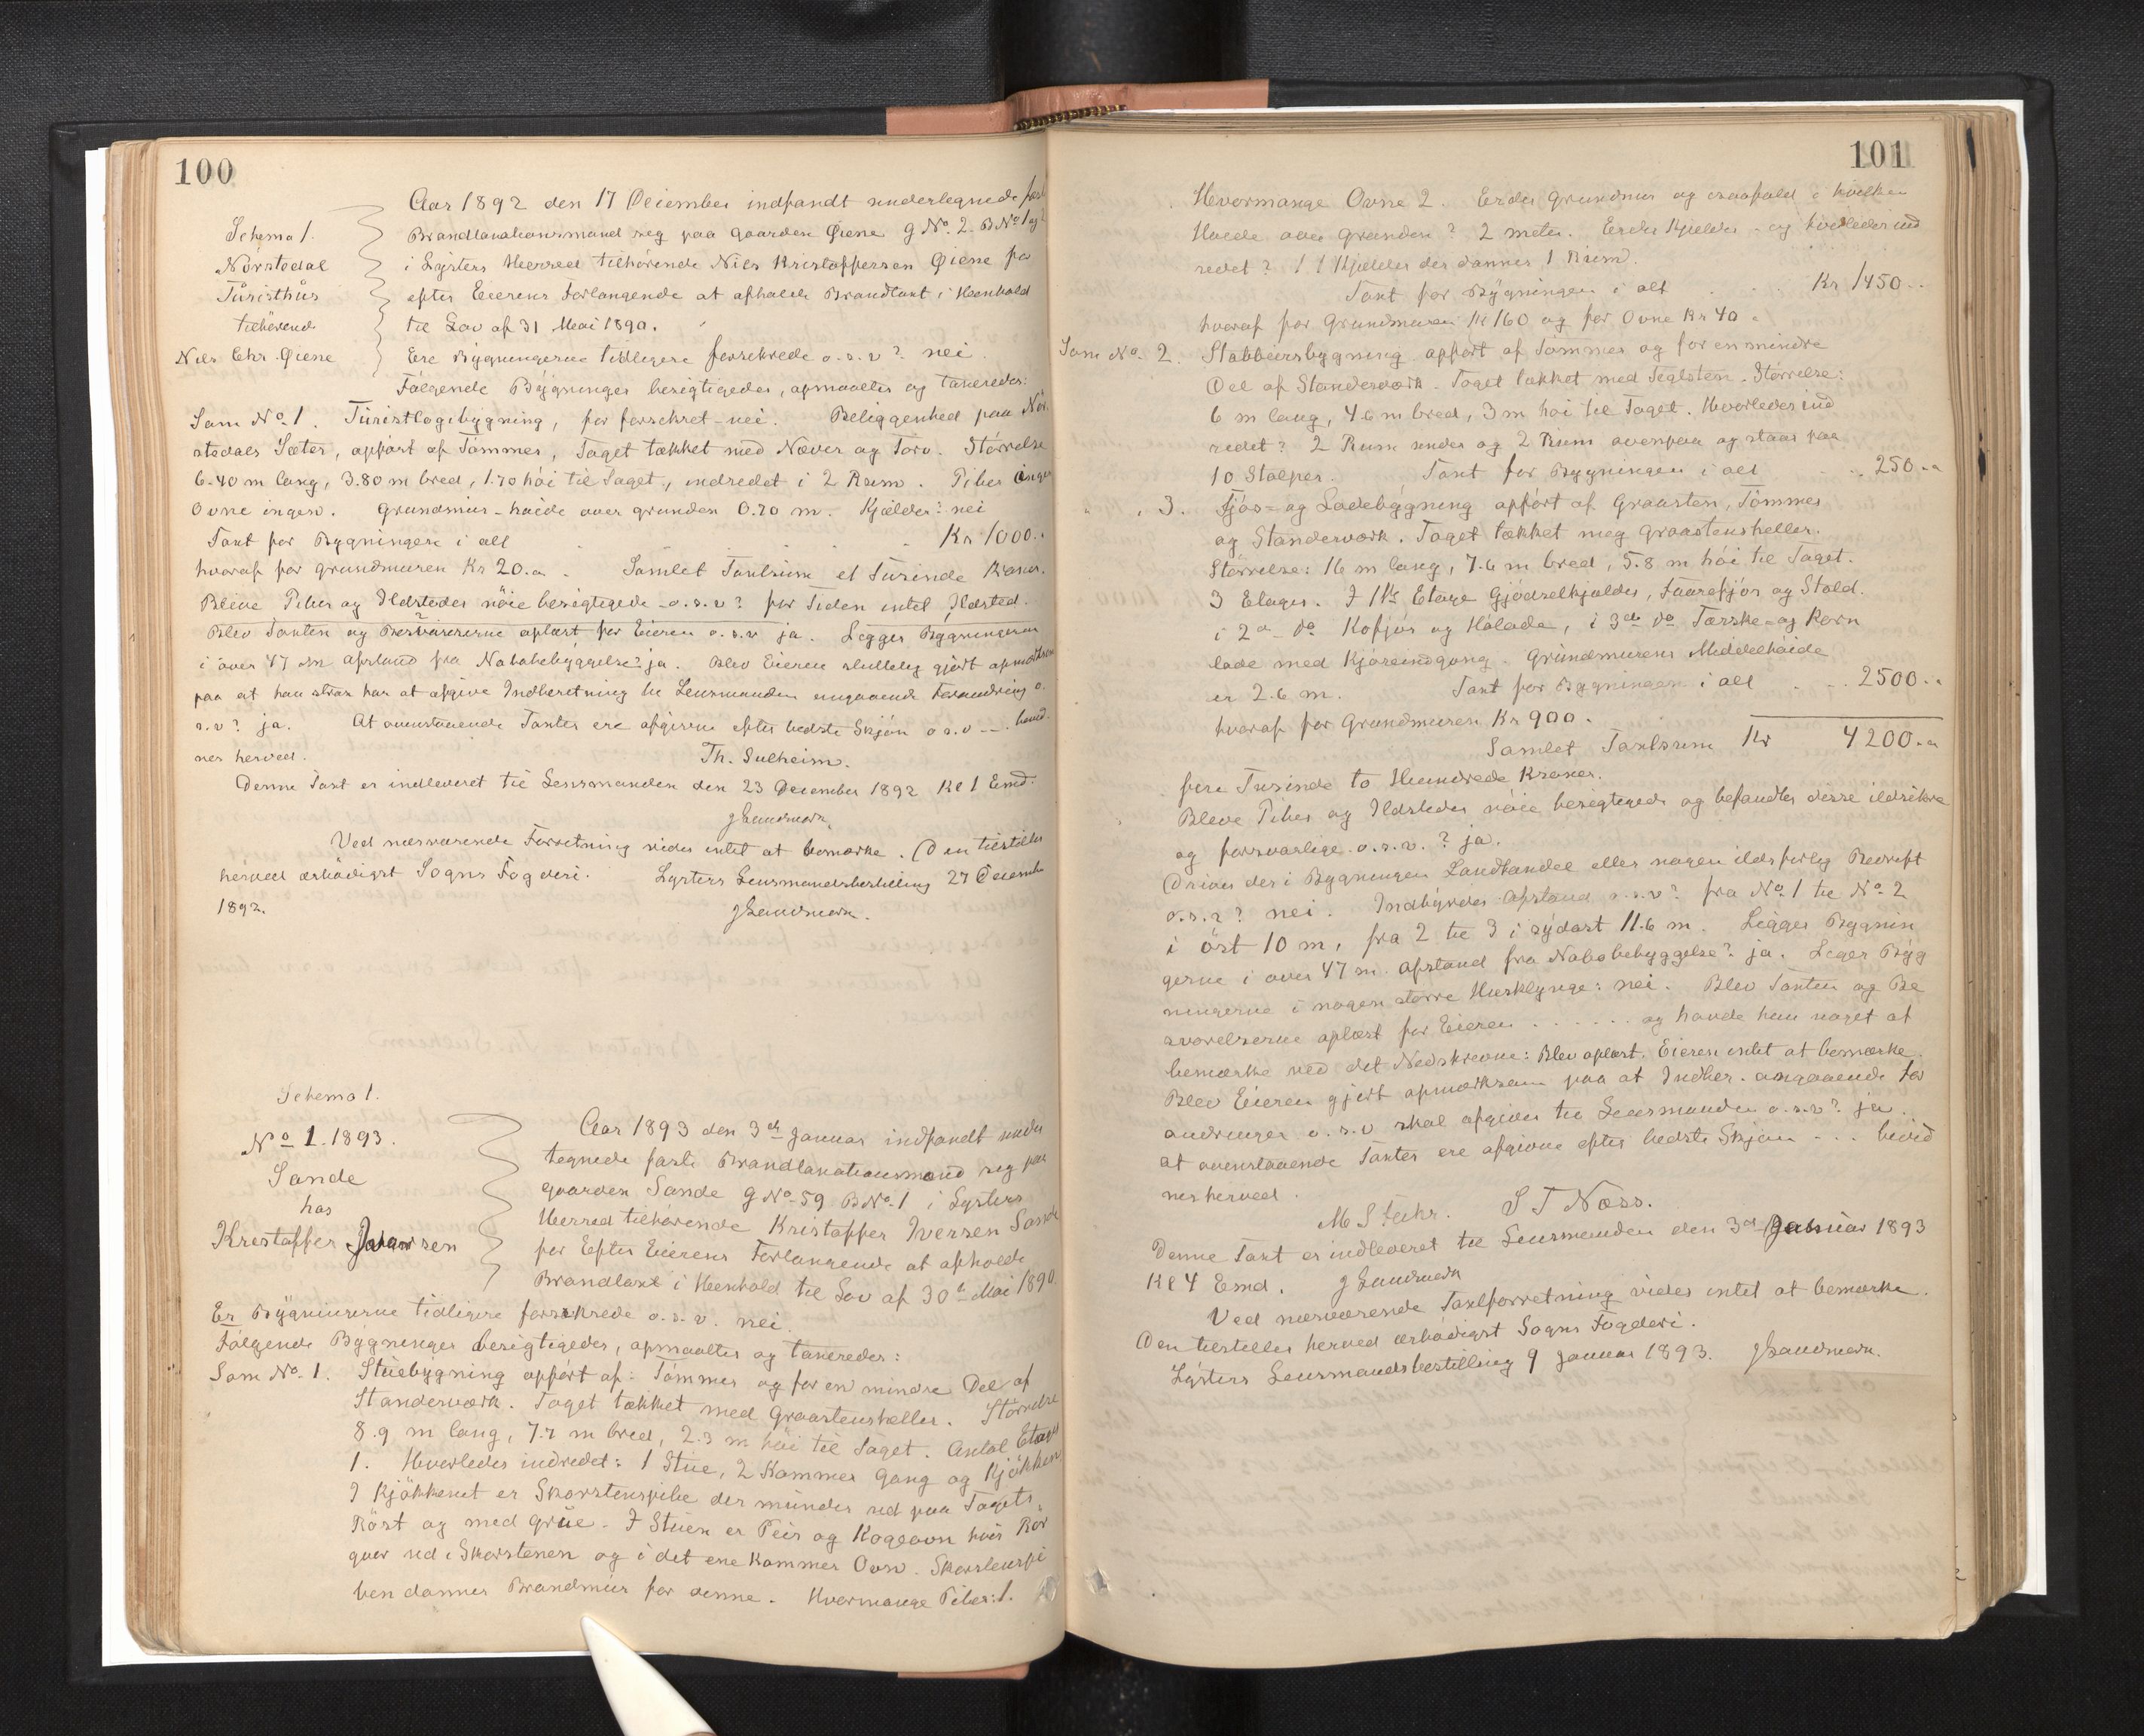 100
Schema 1.
Nørstedal
Turisthus
tilhørende
Nils Chr. Øiene
Aar 1892 den 17 Deiember indfandt undertegnede fast
Brandtaxationsmand seg paa Gaarden Øiene G No. 2. B No 1 og 2
i Lysters Herred tilhørende Nils Kristoffersen Øiene for
efter Eierens Forlangende at afholde Brandtaxt i Henhold
til Lov af 31 Mai 1890.
Ere Bygningerne tidligere forsekrede o.s.v? nei
Følgende Bygninger besigtigedes, opmaaltes og taxeredes:
Som No 1. Turistlogibygning, før forsekret - nei. Beliggenhed paa Nør
stedals Sæter, opført af Tømmer, Taget tækket med Næver og Torv. Størrelse
6.40 m lang, 3.80 m bred, 1.70 høi til Taget, indredet i 2 Rum. Piber ingen
Ovne ingen. Grundmur - høide over grunden 0.20 m. Kjælder: nei
Taxt for Bygningen i alt Kr 1000..
hvoraf for grundmuren Kr 20.. Samlet Taxtsum et Tusinde Kroner.
Bleve Piber og Ildsteder nøie besigtigede - o.s.v? for Tiden intet Ildsted.
Blev Taxten og Besvarererne oplæst for Eieren o.s.v ja. Ligger Bygningerne
i over 47 m Afstand fra Nabobebyggelse? ja. Blev Eieren sluttelig gjort opmærksom
paa at han strax har at afgive Indberetning til Lensmanden angaaende Forandring o.
s.v? ja. At ovenstaaende Taxter ere afgivne efter bedste Skjøn o s.v -.. bevid
nes herved.
Th. Sulheim.
Denne Taxt er indleveret til Lensmanden den 23 December 1892 Kl 1 Emd.
J Sandmark
Ved nærværende Forretning vides intet at bemærke. Den tilstilles
herved ærbødigst Sogns Fogderi. Lysters Lensmandsbestilling 27 Deiembr
1892.
J Sandmark.
Schema 1.
No 1. 1893.
Sande
hos
Kristoffer Iversen
Aar 1893 den 3de Januar indfandt under
tegnede faste Brandtaxationsmænd seg paa
gaarden Sande G No. 59 B No. 1 i Lysters
Herred tilhørende Kristoffer Iversen Sande
for Efter Eierens Forlangende at afholde
Brandtaxt i Henhold til Lov af 30te Mai 1890
Er Bygningerne tidligere forsekrede o.s.v. nei.
Følgende Bygninger besigtigedes, opmaaltes og taxeredes:
Som No. 1. Stuebygning opført af: Tømmer og for en mindre Del af
Standerværk. Taget tækket med Graastensheller. Størrelse
8.9 m lang, 7.7 m bred, 2.3 m høi til Taget. Antal Etager
1. Hvorledes indredet: 1 Stue, 2 Kammer Gang og Kjøkken
I Kjøkkenet er Skorstenspibe der munder ud paa Tagets
Røst og med Grue. I Stuen er Peis og Kogeovn hvis Rør
gaar ud i Skorstenen og i det ene Kammer Ovn. Skorstenspi
ben danner Brandmur for denne. Hvormange Piber: 1.
101
Hvormange Ovne 2. Er der grundmur og isaafald i hvilken
Høide over Grunden? 2 meter. Er der Kjelder - og hvorledes ind
redet? 1 Kjelder der danner 1 Rum.
Taxt for Bygningen i alt Kr 1450..
hvoraf for Grundmuren Kr 160 og for Ovne Kr 40.
Som No. 2. Stabbursbygning opført af Tømmer og for en mindre
Del af Standerværk. Taget tækket med Teglsten. Størrelse:
6 m lang, 4.6 m bred, 3 m høi til Taget. Hvorledes ind
redet? 2 Rum under og 2 Rum ovenpaa og staar paa
10 Stolper. Taxt for Bygningen i alt .. 250..
" . 3. Fjøs= og Ladebygning opført af Graasten, Tømmer
og Standerværk. Taget tækket meg Graastensheller.
Størrelse: 16 m lang, 7.6 m bred, 5.8 m høi til Taget.
3 Etager. I 1ste Etage Gjødselkjælder, Faarefjøs og Stald.
i 2den do Kofjøs og Hølade, i 3die do Tærske- og Korn
lade med Kjøreindgang. Grundmurens Middelhøide
er 2.6 m. Taxt for Bygningen i alt .. 2500..
hvoraf for Grundmuren Kr 900.
Samlet Taxtsum Kr 4200..
fire Tusinde to Hundrede Kroner.
Bleve Piber og Ildsteder nøie besigtigede og befandtes disse ildsikre
og forsvarlige o.s.v.? ja.
Drives der i Bygningen Landhandel eller nogen ildsfarlig Bedrift
o.s.v? nei. Indbyrdes Afstand o.s.v? fra No. 1 til No. 2
i øst 10 m, fra 2 til 3 i sydøst 11.6 m. Ligger Bygnin
gerne i over 47 m Afstand fra Nabobebyggelse? ja. Ligger Byg
ningerne i nogen større Husklynge: nei. Blev Taxten og Be
svarelserne oplæst for Eieren . . . . . . og havde han noget at
bemærke ved det Nedskrevne: Blev oplæst. Eieren intet at bemærke.
Blev Eieren gjort opmærksom paa at Indber. angaaende For
andringer o.s.v skal afgives til Lensmanden o.s.v? ja.
At ovenstaaende Taxter ere afgivne efter bedste Skjøn ... bevid
nes herved.
M S Fuhr. S T Næss.
Denne Taxt er indleveret til Lensmanden den 3de Januar 1893
Kl 4 Emd. J Sandmark
Ved nærværende Taxtforretning vides intet at bemærke.
Den tilstilles herved ærbødigst Sogns Fogderi.
Lysters Lensmandsbestilling 9 Januar 1893. J Sandmark.